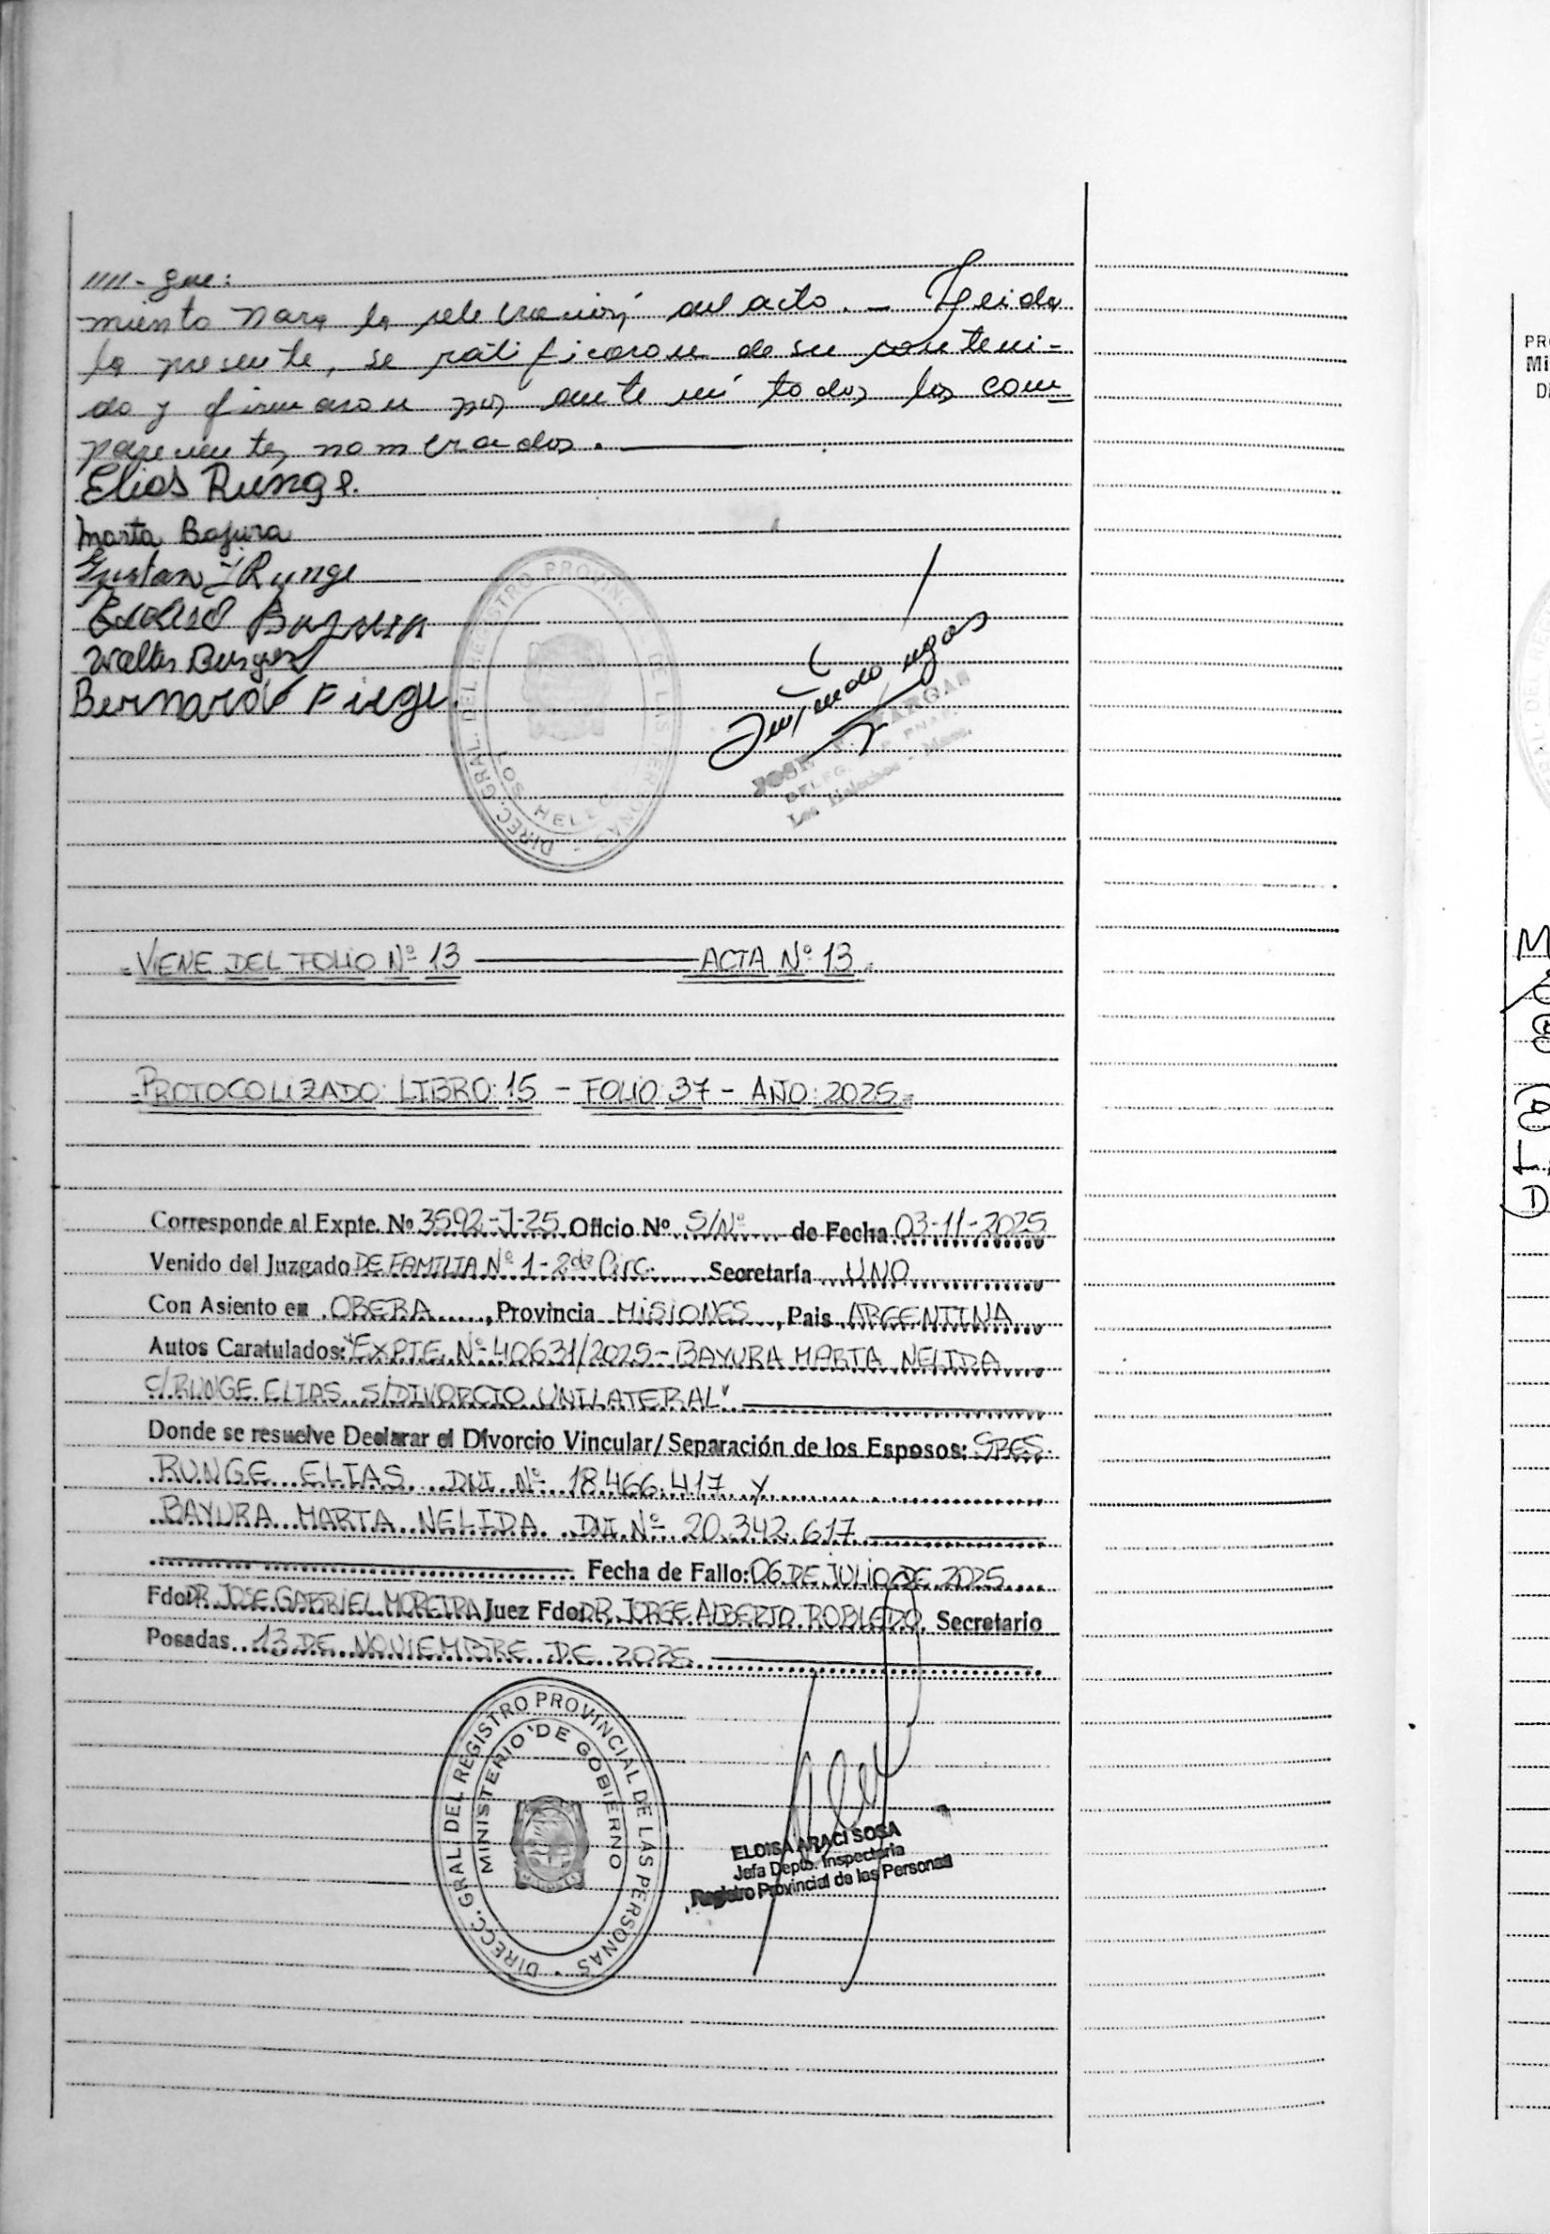 ////- gue:
miento para la celebración del acto. - Leida
la presente, se ratificaron de su conteni=
do y firmaron por ante mí todos los com=
parecientes nombrados.
Elias Runge.
Marta Bajura
Gustav J Runge
Bajura
Walter Burger
Bernardo Fiege.
DIREC. GRAL. DEL REGISTRO PROVINCIAL DE LAS PERSONAS
VARGAS
Los Helechos - Mnes.
=VIENE DEL FOLIO Nº 13 ACTA Nº 13=
=PROTOCOLIZADO: LIBRO: 15 - FOLIO: 37 - AÑO: 2025=
Corresponde al Expte. Nº 3592-J-25 Oficio Nº S/Nº de Fecha 03-11-2025
Venido del Juzgado DE FAMILIA Nº 1 - 2da Circ. Secretaría UNO
Con Asiento en OBERA, Provincia MISIONES, Pais ARGENTINA
Autos Caratulados: "EXPTE. Nº 40631/2025 - BAYURA MARTA NELIDA
C/RUNGE ELIAS S/DIVORCIO UNILATERAL"
Donde se resuelve Declarar el Divorcio Vincular/Separación de los Esposos: SRES.
RUNGE ELIAS DNI Nº 18.466.417 Y
BAYURA MARTA NELIDA DNI Nº 20.342.617
Fecha de Fallo: 06 DE JULIO DE 2025
Fdo: DR. JOSE GABRIEL MOREIRA Juez Fdo: DR. JORGE ALBERTO ROBLEDO, Secretario
Posadas 13 DE NOVIEMBRE DE 2025
DIRECC. GRAL. DEL REGISTRO PROVINCIAL DE LAS PERSONAS
MINISTERIO DE GOBIERNO
ELOISA ARACI SOSA
Jefa Depto. Inspectoria
Registro Provincial de las Personas